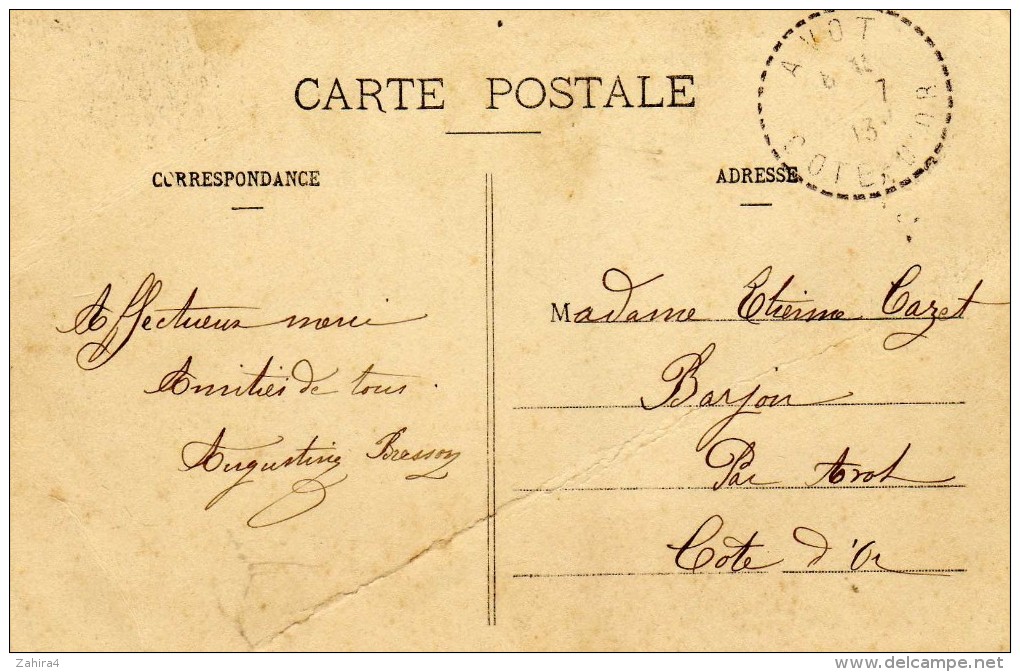 CARTE POSTALE
CORRESPONDANCE
ADRESSE
AVOT
7
13
COTE-D'OR
Affectueux merci
Amitiés de tous
Augustine Bresson
Madame Etienne Cazet
Barjon
Par Avot
Cote d'Or
Zahira4
www.delcampe.net